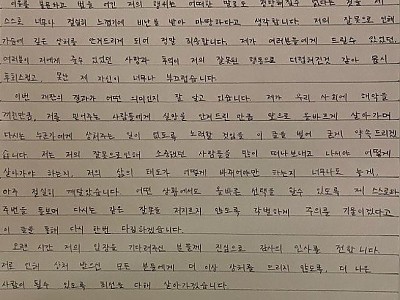 이후를 불문하고 법을 어긴 저의 행위는 어떠한 말로도 변명해질수 없다는 것을 저
스스로 너무나 절실히 느꼈기에 비난을 받아 마땅하다고 생각합니다. 저의 잘못으로 인해
가슴에 깊은 상처를 안겨드리게 되어 정말 죄송합니다. 제가 여러분들에게 드릴수 있었던,
여러분이 저에게 줄수 있었던 사랑과 추억이 저의 잘못된 행동으로 더럽혀진것 같아 몹시
후회스럽고, 못난 제 자신이 너무나 부끄럽습니다.
이번 재판의 결과가 어떤 의미인지 잘 알고 있습니다. 제가 우리 사회에 해악을
끼친만큼, 저를 믿어주는 사람들에게 실망을 안겨드린 만큼 앞으로 올바르게 살아가며
다시는 누군가에게 상처주는 일이 없도록 노력할 것임을 이 글을 빌어 굳게 약속드리겠
습니다. 저는 저의 잘못으로인해 소중했던 사람들을 많이 떠나보내고 나서야 어떻게
살아가야 하는지, 저의 삶의 태도가 어떻게 바뀌어야만 하는지 너무나도 늦게,
아주 절실히 깨달았습니다. 어떤 상황에서도 올바른 선택을 할수 있도록 제 스스로와
주변을 돌보며 다시는 같은 잘못을 저지르지 않도록 각별하게 주의를 기울이겠다고
이 글을 통해 다시 한번 다짐하겠습니다.
오랜 시간 저의 입장을 기다려주신 분들께 진심으로 감사의 인사를 전합니다.
저로 인해 상처 받으신 모든 분들에게 더 이상 상처를 드리지 않도록, 더 나은
사람이 될수 있도록 최선을 다해 살아가겠습니다.